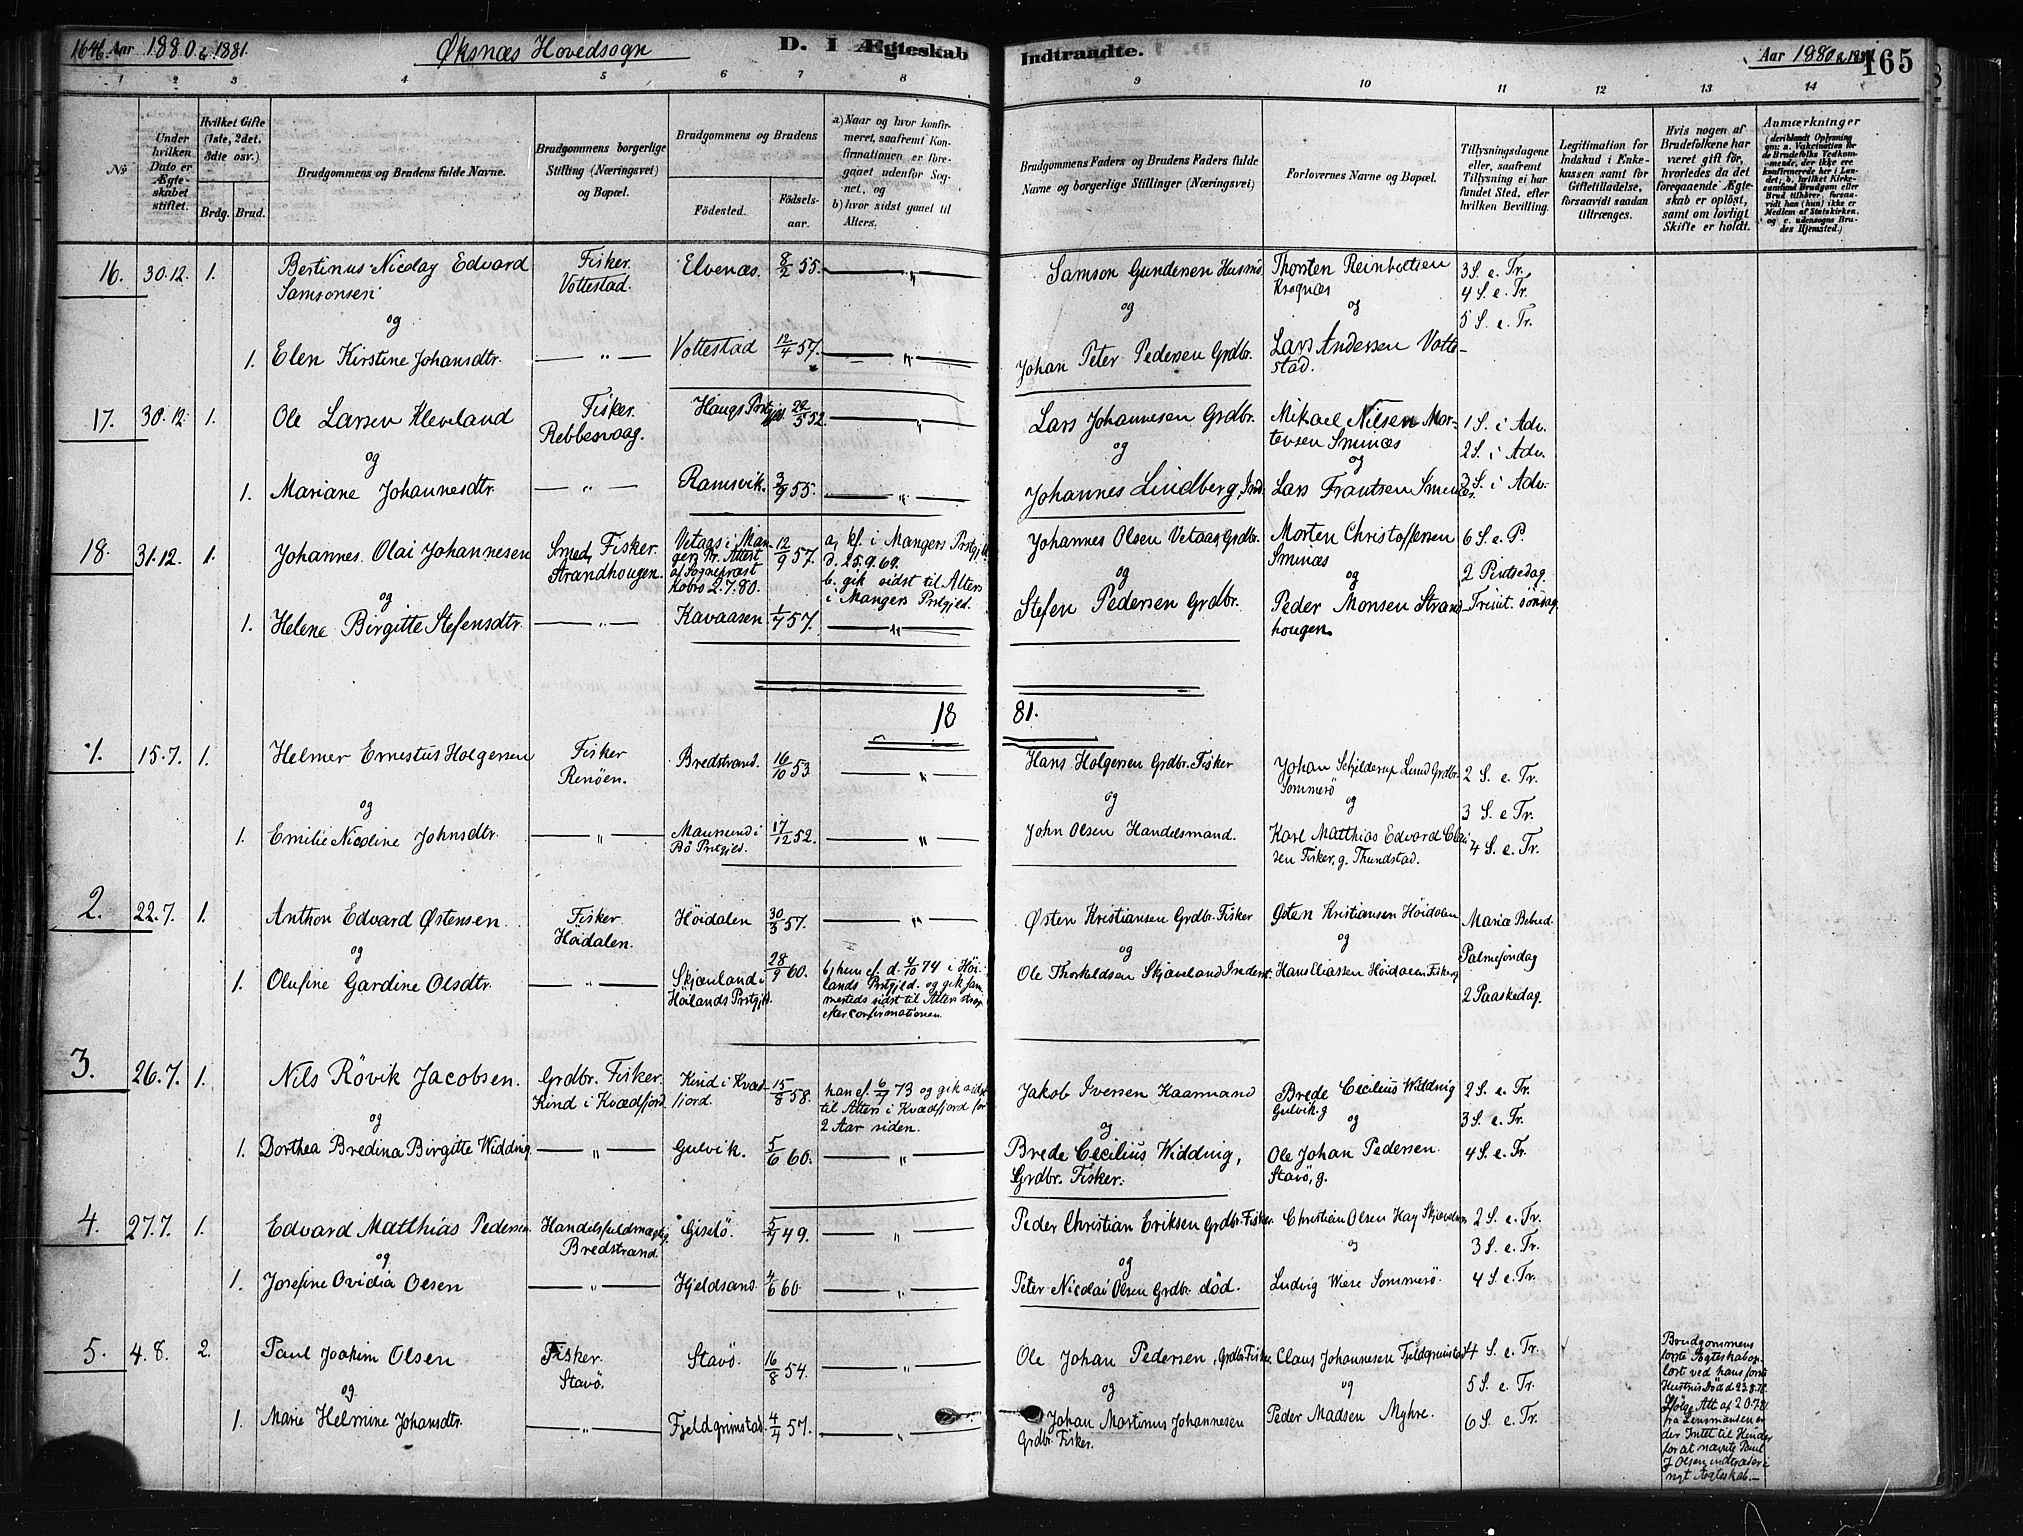 1646. Aar 1880 & 1881. Øksnæs Hovedsogn D. I Ægteskab Indtraadte. Aar 1880 & 1881 165
1 2 3 4 5 6 7 8 9 10 11 12 13 14
No
Under hvilken Dato er Ægteskabet stiftet.
Hvilket Gifte (1ste, 2det, 3die osv.)
Brdg. Brud.
Brudgommens og Brudens fulde Navne.
Brudgommens borgerlige Stilling (Næringsvei) og Bopæl.
Brudgommens og Brudens
Fødested. Fødselsaar.
a) Naar og hvor konfirmeret, saafremt Konfirmationen er foregaaet udenfor Sognet, og
b) hvor sidst gaaet til Alters.
Brudgommens Faders og Brudens Faders fulde Navne og borgerlige Stillinger (Næringsvei)
Forlovernes Navne og Bopæl.
Tillysningsdagene eller, saafremt Tillysning ei har fundet Sted, efter hvilken Bevilling.
Legitimation for Indskud i Enkekassen samt for Giftetilladelse, forsaavidt saadan tiltrænges.
Hvis nogen af Brudefolkene har været gift før, hvorledes da det foregaaende Ægteskab er opløst, samt om lovligt Skifte er holdt.
Anmærkninger
(deriblandt Oplysning om: a. Vaccination for de Brudefolks Vedkommende, der ikke ere konfirmerede her i Landet; b. hvilket Kirkesamfund Brudgom eller Brud tilhører, forsaavidt han (hun) ikke er Medlem af Statskirken, og c. udensogns Brudes Hjemsted.)
16. 30.12. 1. Bertinus Nicolay Edvard Fisker. Elvenæs. 8/2 55. — „ — Samson Gundersen Husmd. Thorsten Reinholtsen 3 S. e. Tr.
Samsonsen Vottestad. Krognæs 4 S. e. Tr.
og og og 5 S. e. Tr.
1. Elen Kirstine Johansdtr. — „ — Vottestad 12/4 57. — „ — Johan Peter Pedersen Grdbr. Lars Andersen Vottestad.
17. 30.12. 1. Ole Larsen Kleveland Fisker. Haugs Prstgjld 22/5 52. — „ — Lars Johannesen Grdbr. Mikael Nilsen Mor- 1 S. i Adv.
Rebbesvaag. og tensen Smines 2 S. i Adv.
og og
1. Mariane Johannesdtr. — „ — Ramsvik. 3/9 55. — „ — Johannes Lindberg, Ind. Lars Frantsen Smines. 3 S. i Adv.
18. 31.12. 1. Johannes Olai Johannesen Smed, Fisker. Vetaas i Man- 12/9 57. a, kf. i Mangers Prstgjld Johannes Olsen Vetaas, Grdbr. Morten Christoffersen 6 S. e. P.
Strandhougen. gers Pr. Attest d. 25.9.69. Sminæs
af Sognepræst b. gik sidst til Alters og 2 Pintsedag.
2.7.80. i Mangers Prstgjld.
og og
1. Helene Birgitte Stefensdtr. — „ — Kavaasen 1/7 57. — „ — Stefen Pedersen Grdbr. Peder Monsen Strand- Trinit. söndag
hougen.
18 81.
1. 15.7. 1. Helmer Ernestus Holgersen Fisker Bredstrand. 16/10 53 — „ — Hans Holgersen Grdbr. Fisker Johan Schjelderup Lund Grdbr. 2 S. e. Tr.
Renöen. Sommerö
og og og 3 S. e. Tr.
1. Emilie Nicoline Johnsdtr. — „ — Maursund i 17/12 52. — „ — John Olsen Handelsmand. Karl Matthias Edvard Clau- 4 S. e. Tr.
Bö Prstgjld. sen Fisker, g. Thundstad.
2. 22.7. 1. Anthon Edvard Østensen. Fisker Höidalen 30/3 57. — „ — Østen Kristiansen Grdbr. Fisker Østen Kristiansen Höidalen Mariæ Bebud.
Höidalen.
og og og Palmesöndag
1. Olufine Gardine Olsdtr. — „ — Skjænland i 28/9 60. b, hun cf. d. 4/10 74 i Höi- Ole Thorkeldsen Skjænland Inderst. Hans Eliassen Höidalen Fisker
Höilands Prstgjld. lands Prstgjld. og gik sam- 2 Paaskedag.
mesteds sidst til Alters strax
efter confirmationen.
3. 26.7. 1. Nils Rövik Jacobsen. Grdbr. Fisker. Kind i Kvæd- 15/8 58. han cf. 6/7 73 og gik sidst Jakob Iversen Kaarmand Brede Cecilius Widding 2 S. e. Tr.
Kind i Kvædfjord. fjord. til Alters i Kvædfjord for Gulvik. g
2 Aar siden.
og og og 3 S. e. Tr.
1. Dorthea Bredina Birgitte Widding — „ — Gulvik. 5/6 60. — „ — Brede Cecilius Widding, Ole Johan Pedersen. 4 S. e. Tr.
Grdbr. Fisker. Stavö, g.
4. 27.7. 1. Edvard Matthias Pedersen Handelsfuldmægtig Gislö. 5/7 49. — „ — Peder Christian Eriksen Grdbr. Fisker. Christian Olsen 2 S. e. Tr.
Bredstrand.
og og 3 S. e. Tr.
1. Josefine Ovidia Olsen — „ — Hjeldsand. 4/6 60. — „ — Peter Nicolai Olsen Grdbr. död. Ludvig Wiese Sommerö. 4 S. e. Tr.
5. 4.8. 2. Paul Joakim Olsen Fisker. Stavö. 16/8 54. — „ — Ole Johan Pedersen, Grdbr. Fisker. Claus Johannesen Fjeldgrimstad 4 S. e. Tr.
Stavö.
og og og 5 S. e. Tr.
1. Marie Helmine Johansdtr. — „ — Fjeldgrimstad. 4/7 57. — „ — Johan Martinus Johannesen Peder Madsen Myhre. 6 S. e. Tr.
Grdbr. Fisker.
Brudgommens
forste Ægteskab op-
löst ved hans förste
Hustrus Död d 23.8.78.
Ifölge Att. af 20.7.81
fra Lensmanden er
der Intet til Hinder
for at nævnte Paul
J Olsen indtræder i
nyt Ægteskab.—